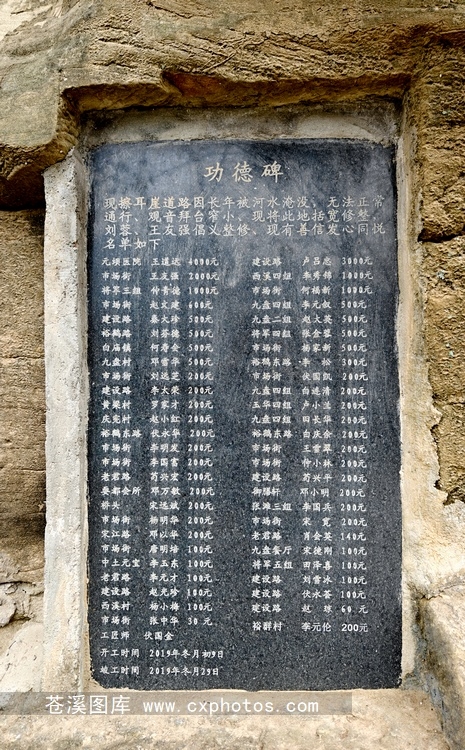 功德碑
现擦耳崖道路因长年被河水淹没，无法正常
通行、观音拜台窄小、现将此地括宽修整。
刘蓉、王友强倡义整修、现有善信发心同悦
名单如下
元坝医院 王道远 4000元 建设路 卢吕忠 3000元
市场街 王友强 2000元 西溪四组 李秀锦 1000元
将军三组 仲青德 1000元 市场街 何福新 1000元
市场街 赵文建 600元 九盘四组 李元叙 500元
建设路 秦大珍 500元 九盘二组 赵大英 500元
裕鹤路 刘芬德 500元 将军四组 张金蓉 500元
白庙镇 何寿全 500元 市场街 杨家新 500元
九盘村 邓雪华 500元 裕鹤东路 李松 300元
市场街 刘远芝 206元 市场街 伏国凯 200元
建设路 李太荣 200元 九盘四组 白连清 200元
黄梁村 罗家才 200元 玉华四组 卢小兰 200元
庆宪村 赵小红 200元 九盘四组 田长华 200元
裕鹤东路 伏永华 200元 裕鹤东路 白庆余 200元
市场街 华明发 200元 市场街 王雪翠 200元
市场街 李国富 200元 市场街 仲小林 200元
老君路 苟兴宏 200元 建设路 苟兴平 200元
娄都会所 邓万敏 200元 御爆轩 邓小明 200元
桥头 宋远斌 200元 张滩三组 李国兵 200元
市场街 杨明华 200元 市场街 宋宽 200元
宋江路 邓以华 200元 老君路 肖会英 140元
市场街 唐明培 100元 九盘餐厅 宋德刚 100元
中土元宝 李玉东 100元 将军五组 田泽喜 100元
老君路 李元才 100元 建设路 刘雪冰 100元
建设路 赵元珍 100元 建设路 伏水荟 100元
西溪村 杨小梅 100元 建设路 赵琼 60元
市场街 张中华 30元 裕群村 李元伦 200元
工匠师 伏国金
开工时间 2019年冬月初9日
竣工时间 2019年冬月29日
苍溪图库 www.cxphotos.com